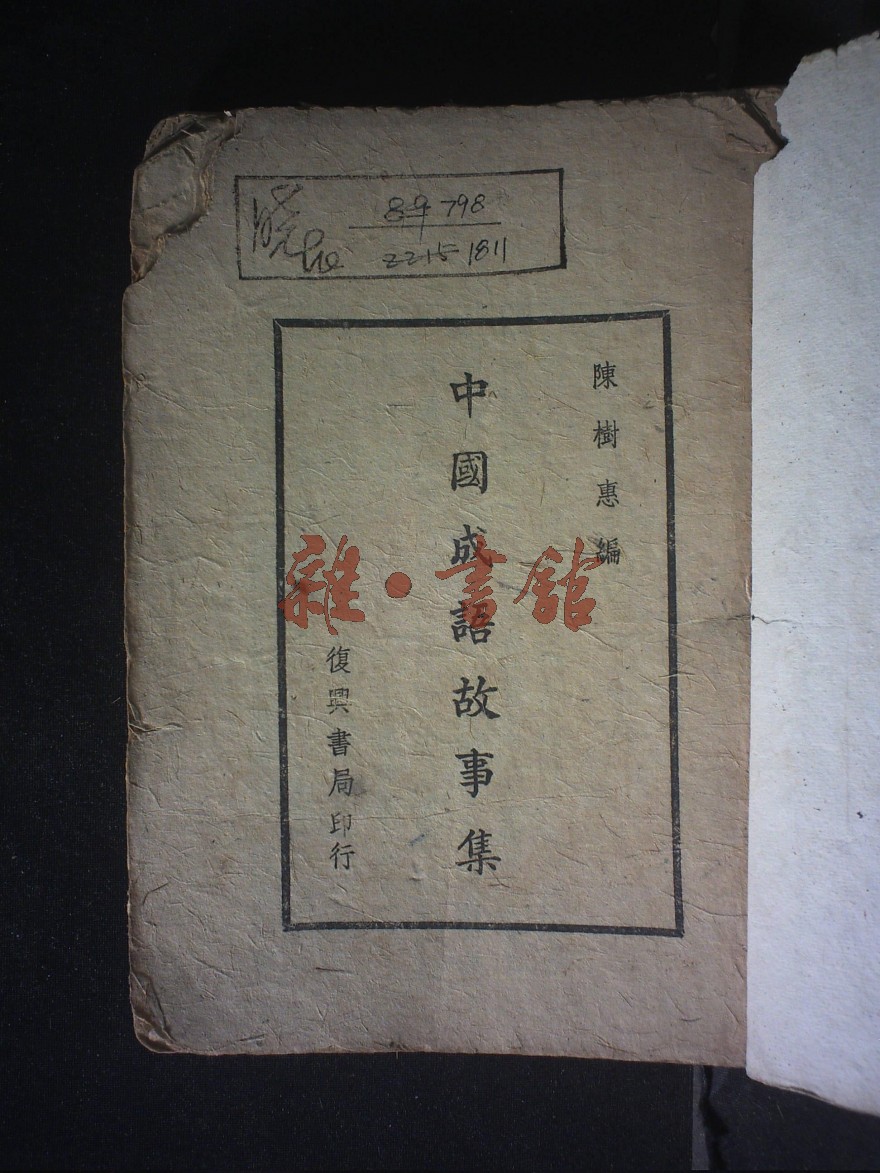 89 798
2215 1811
陳樹惠編
中國成語故事集
復興書局印行
雜·書館